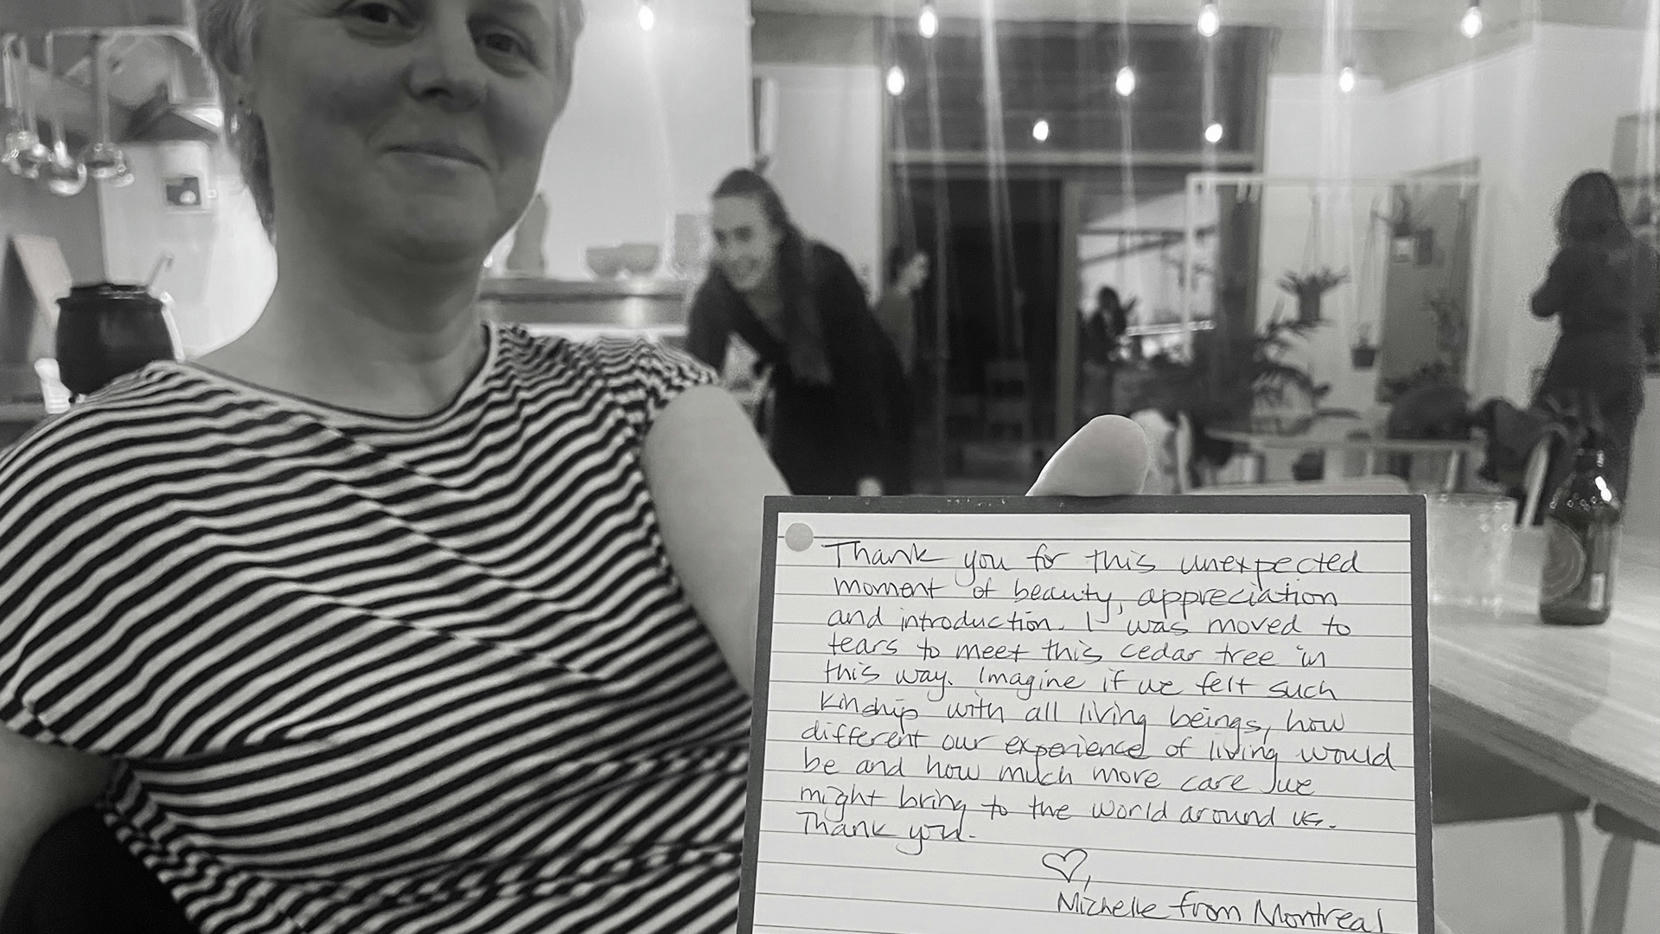 Thank you for this unexpected
moment of beauty, appreciation
and introduction. I was moved to
tears to meet this cedar tree in
this way. Imagine if we felt such
kinship with all living beings, how
different our experience of living would
be and how much more care we
might bring to the world around us.
Thank you.
♡,
Michelle from Montreal